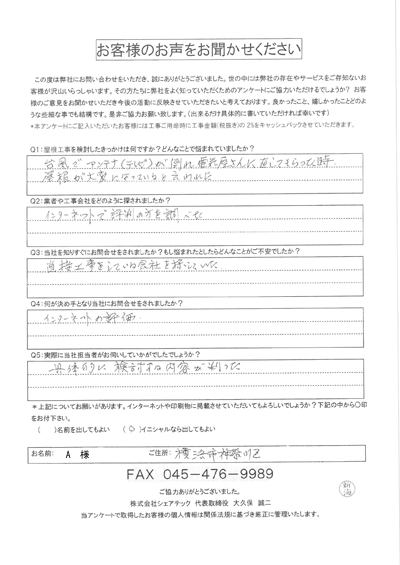 お客様のお声をお聞かせください
この度は弊社にお問い合わせをいただき、誠にありがとうございます。世の中には弊社の存在やサービスをご存知ないお
客様が沢山いらっしゃいます。その方たちに弊社をよく知っていただくためのアンケートにご協力いただけるでしょうか? お客
様のご意見をお聞かせいただき今後の活動に反映させていただきたいと考えております。良かったこと、嬉しかったことどのよう
な些細な事でも結構です。是非ご協力お願い致します。(出来るだけ具体的に書いていただければ幸いです)
*本アンケートにご記入いただいたお客様には工事ご用命時に工事金額(税抜き)の2%をキャッシュバックさせていただきます。
Q1:屋根工事を検討したきっかけは何ですか?どんなことで悩まれていましたか?
台風でアンテナ(テレビ)が倒れ電気屋さんに直してもらった時
屋根が大変になっていると云われた
Q2:業者や工事会社をどのように探されましたか?
インターネットで評判の方を調べた
Q3:当社を知りすぐにお問合せをされましたか?もし悩まれたとしたらどんなことがご不安でしたか?
直接工事をしている会社を探していた
Q4:何が決め手となり当社にお問合せをされましたか?
インターネットの評価
Q5:実際に当社担当者がお伺いしていかがでしたでしょうか?
具体的に検討する内容が判った
*上記についてお願いがあります。インターネットや印刷物に掲載させていただいてもよろしいでしょうか?下記の中から○印
をお付下さい。
( )名前を出してもよい (○)イニシャルなら出してもよい
お名前: A 様 ご住所: 横浜市神奈川区
FAX 045-476-9989
ご協力ありがとうございました。
株式会社シェアテック 代表取締役 大久保 誠二
当アンケートで取得したお客様の個人情報は関係法規に基づき厳正に管理いたします。